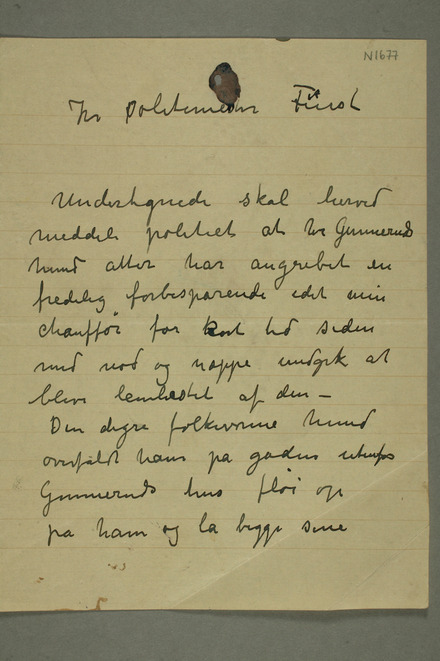 N1677
Hr Politimester Fürst
Undertegnede skal herved
meddele politiet at hr Gunneruds
hund atter har angrebet en
fredelig forbipasserende idet min
chauffør for kort tid siden
med nød og næppe undgik at
blive lemlæstet af den –
Den digre folkevonne hund
overfaldt ham på gaden utenfor
Gunneruds hus fløi op
på ham og la begge sine